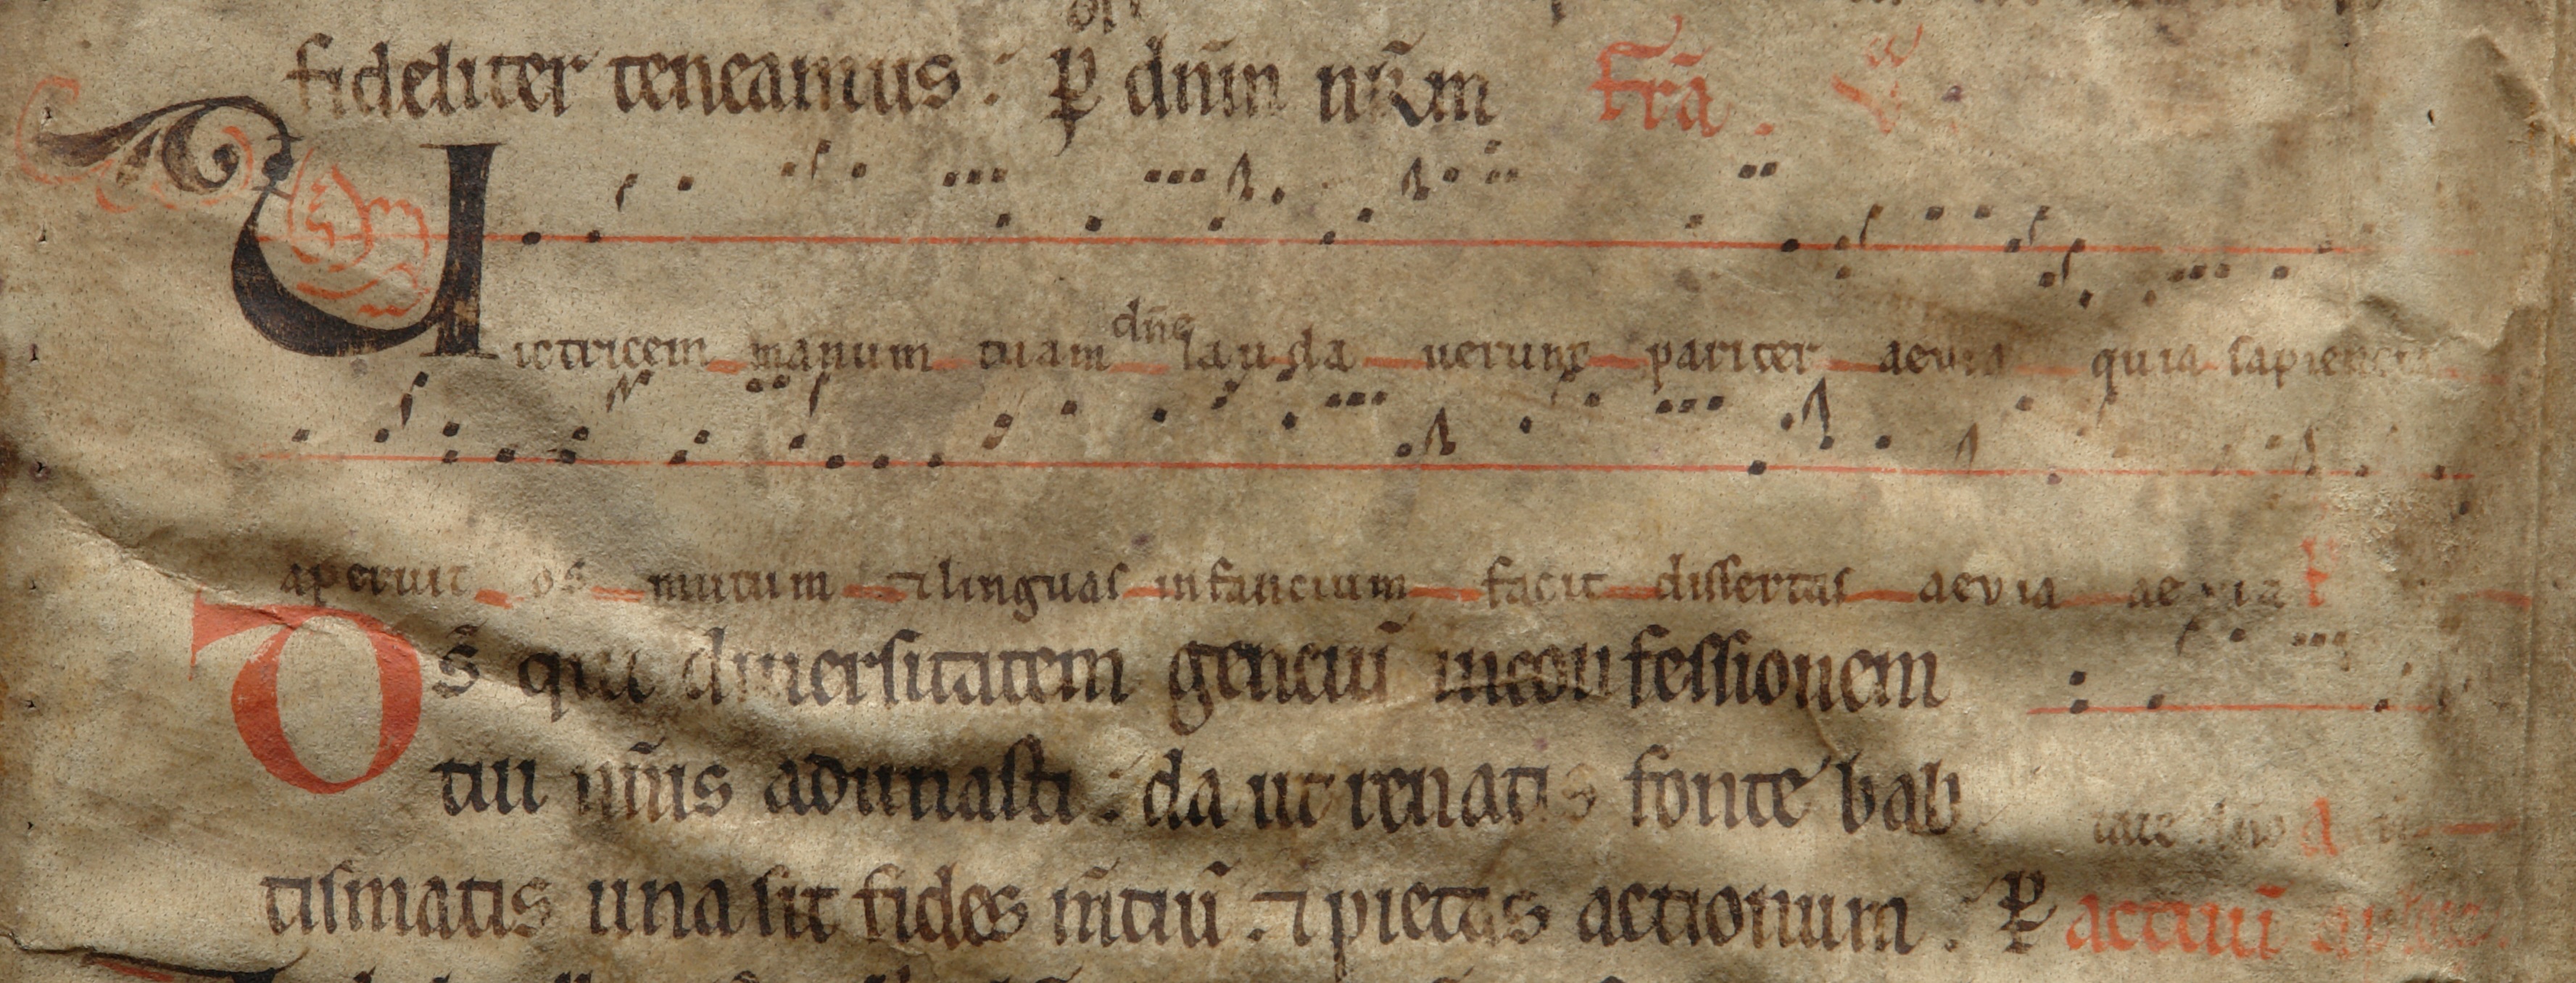 fideliter teneamus : ꝑ dn̄m nr̄m Fr̄a .
Uictricem manum tuam dn̄e lauda uerunt pariter aevia quia sapiencia
aperuit os mutum ⁊ linguas infancium facit dissertas aevia aevia
Ds̄ qui diuersitatem genciū inconfessionem
tui nn̄is adunasti : da ut renatis fonte bab
tismatis una sit fides m̄ciū . ⁊ pietas actionum . ꝑ actuū